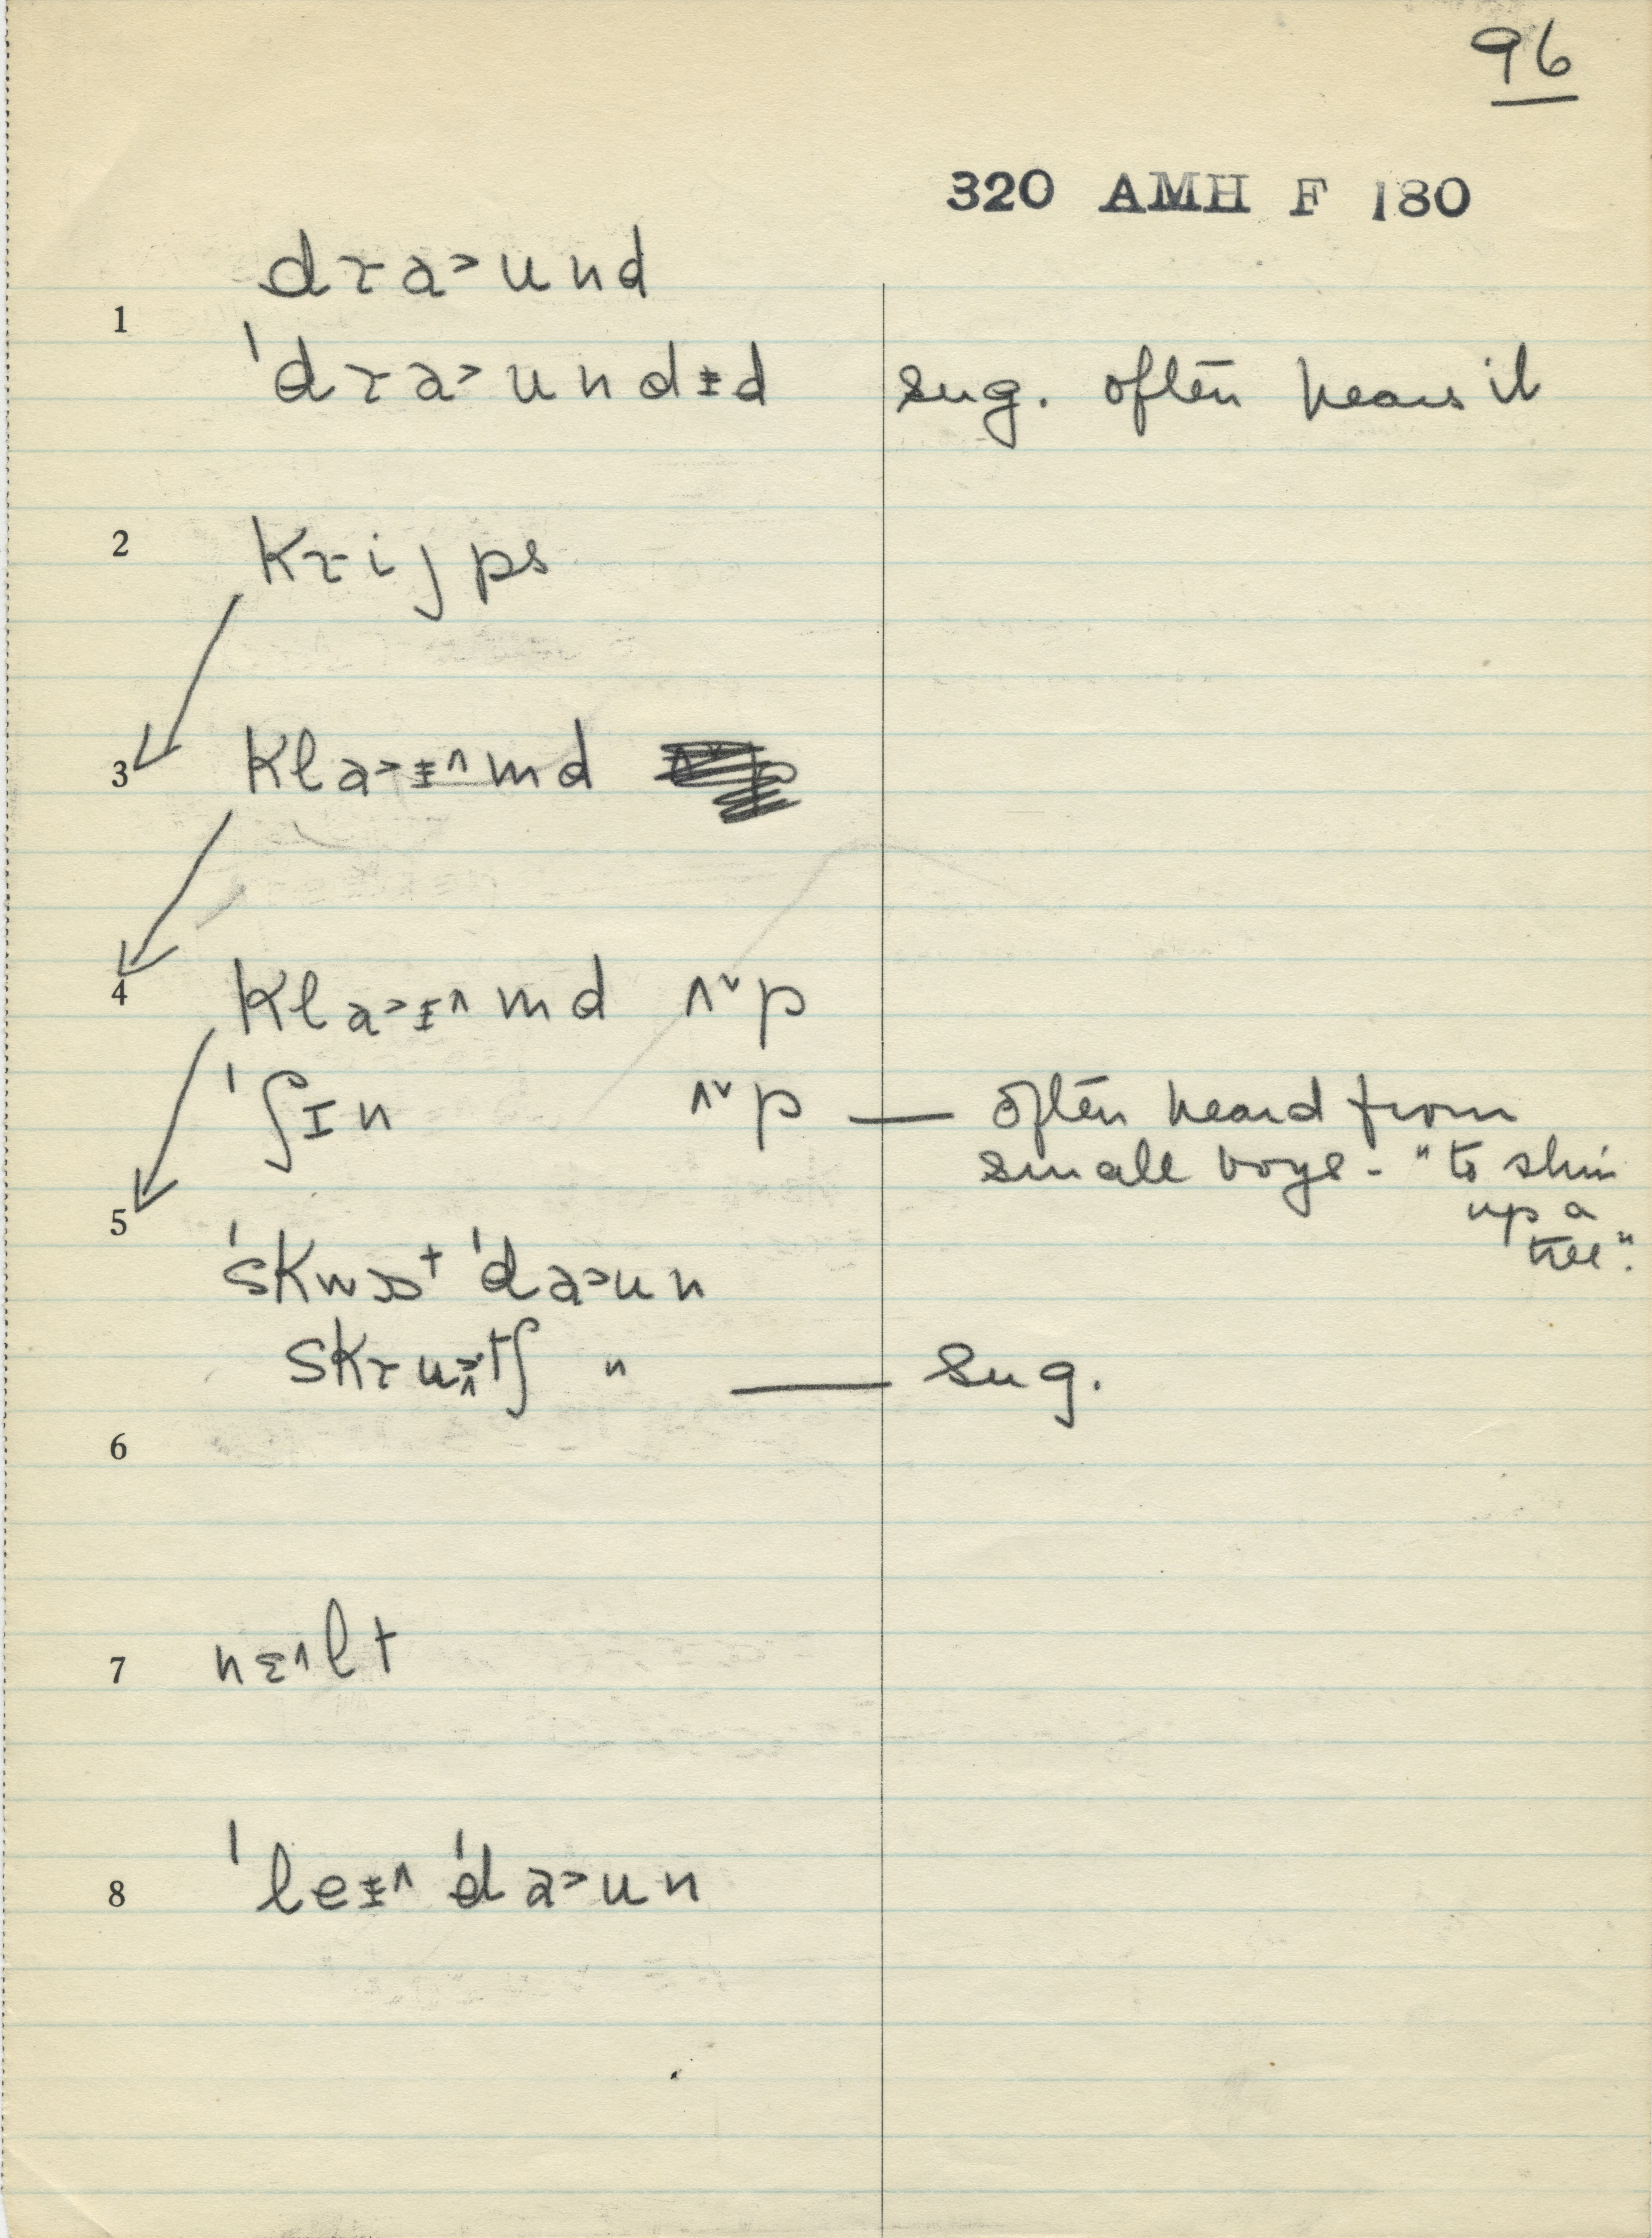 96
320 AMH F 180
drа˃und
1
ˈdra˃undɨd sug. often hears it
2 krijps
3 kla˃ɨ^md
4 kla˃ɨ^md ʌ˅p
ˈʃɪn ʌ˅p — often heard from
small boys - "to shin
up a
tree".
5
ˈskwɔt ˈda˃un
skru tʃ " — sug.
6
7 nɛ^lt
8 ˈleɨ^ ˈda˃un